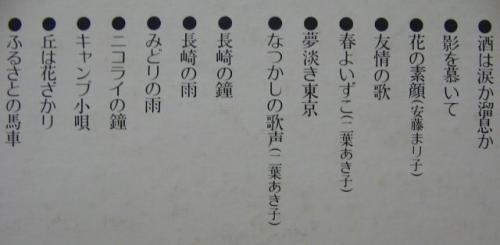 ●酒は涙か溜息か
●影を慕いて
●花の素顔(安藤まり子)
●友情の歌
●春よいずこ(二葉あき子)
●夢淡き東京
●なつかしの歌声(二葉あき子)
●長崎の鐘
●長崎の雨
●みどりの雨
●ニコライの鐘
●キャンプ小唄
●丘は花ざかり
●ふるさとの馬車